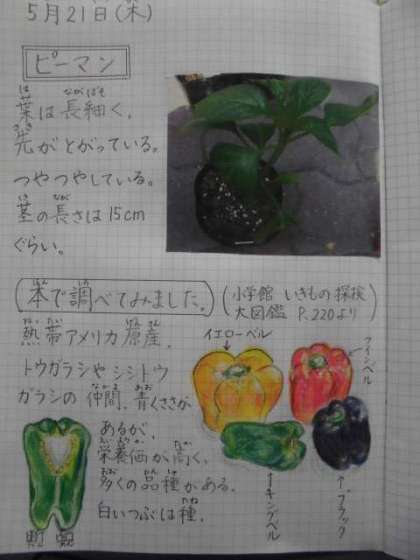 5月21日(木)
ピーマン
葉は長細く、
先がとがっている。
つやつやしている。
茎の長さは15cm
ぐらい。
本で調べてみました。
(小学館 いきもの探検
大図鑑 P.220より)
熱帯アメリカ原産。
トウガラシやシシトウ
ガラシの仲間。青くささが
あるが、
栄養価が高く、
多くの品種がある。
白いつぶは種。
イエローベル
ワインベル
キングベル
ブラック